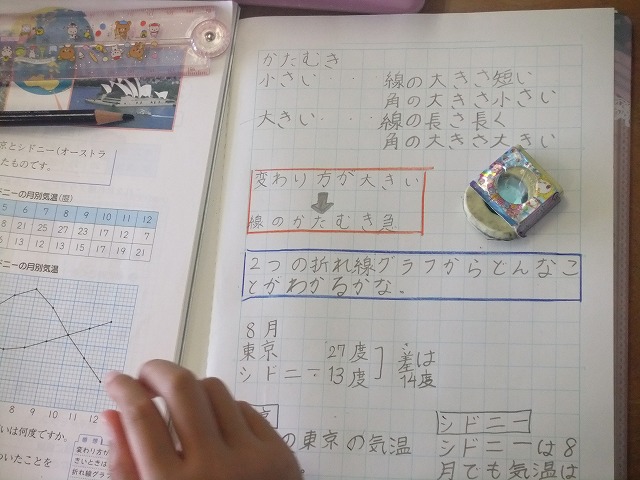 京とシドニー(オーストラ
たものです。
ドニーの月別気温(度)
5 6 7 8 9 10 11 12
21 25 27 23 17 12 7
13 12 13 15 17 19 21
ドニーの月別気温
8 9 10 11 12
いは何度ですか。
ついたことを
変わり方が
きいときは
折れ線グラ
かたむき
小さい・・線の大きさ短い
角の大きさ小さい
大きい・・・線の長さ長く
角の大きさ大きい
変わり方が大きい
線のかたむき急
2つの折れ線グラフからどんなこ
とがわかるかな。
8月
東京 27度
シドニー 13度
差は
14度
の東京の気温
シドニー
シドニーは8
月でも気温は